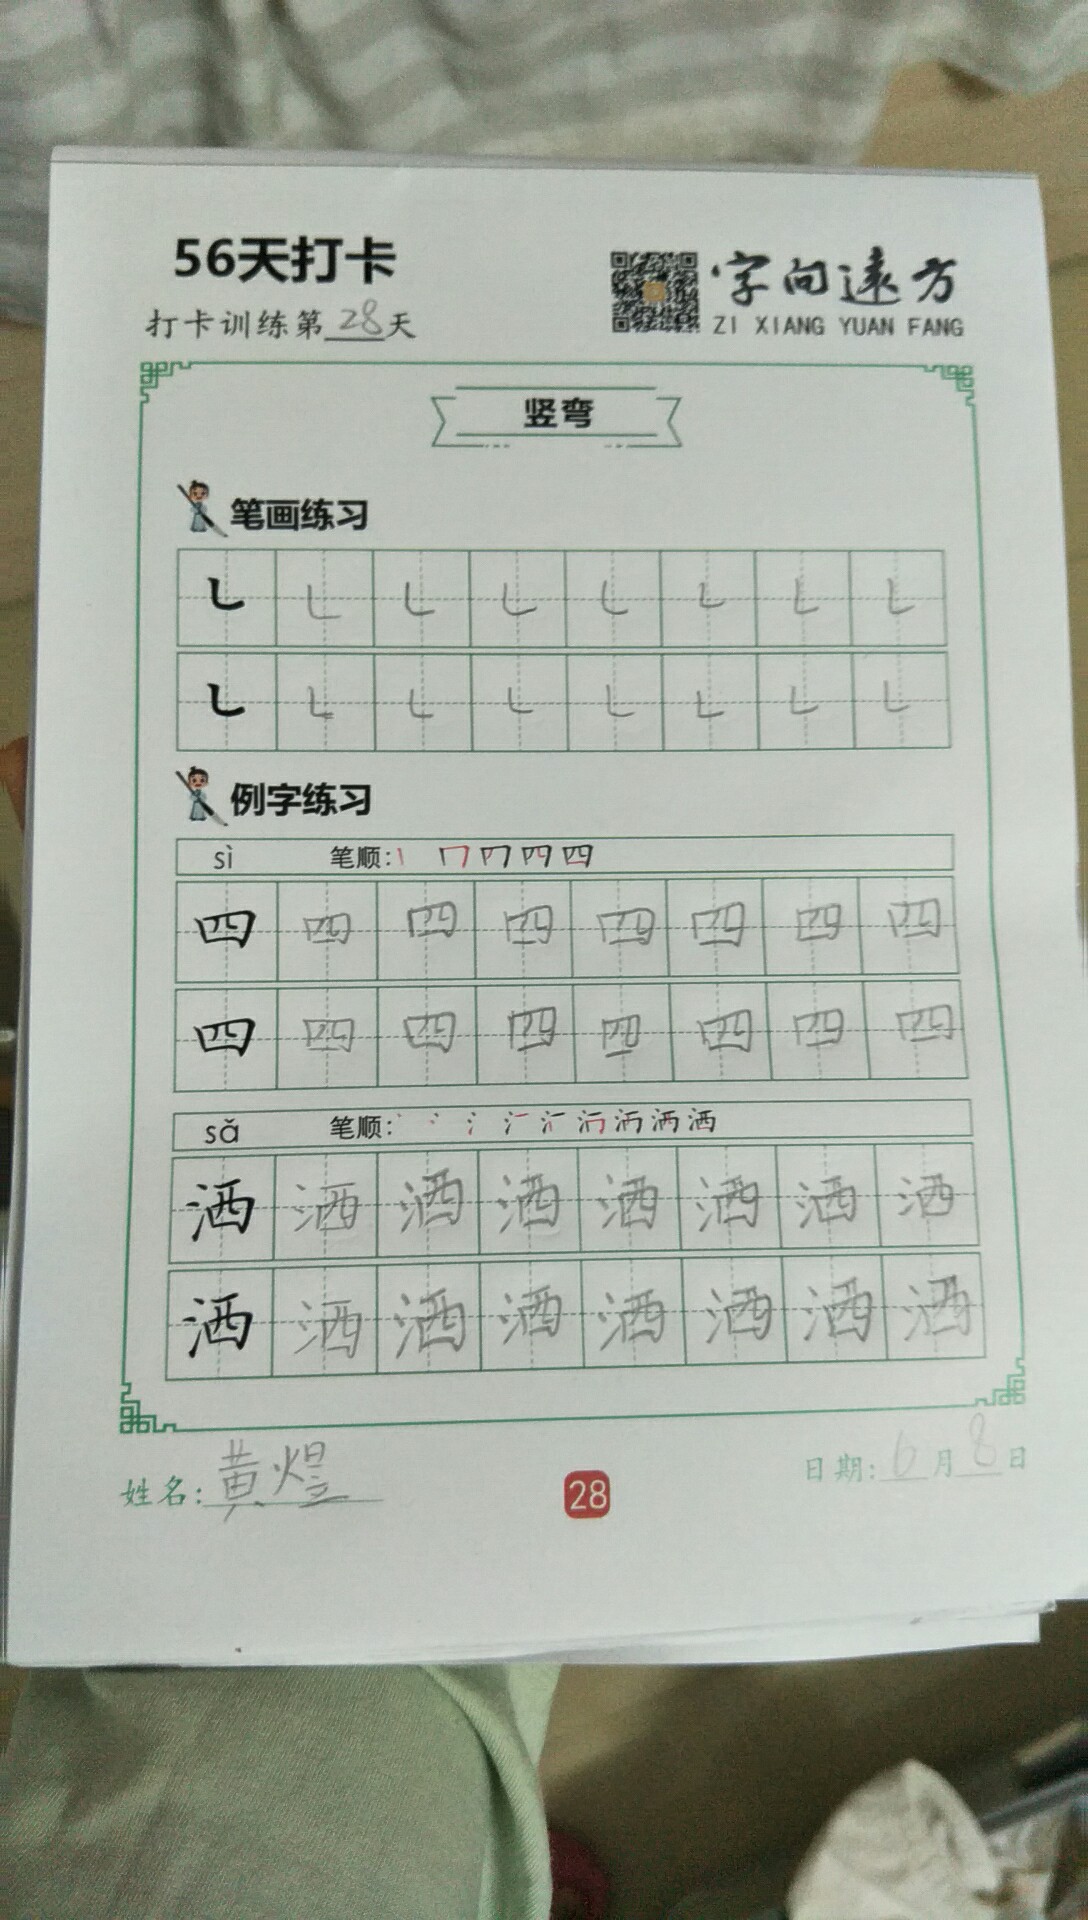 56天打卡
字向远方
打卡训练第28天
ZI XIANG YUAN FANG
竖弯
笔画练习
例字练习
sì 笔顺:
四 四 四 四 四 四 四 四
四 四 四 四 四 四 四 四
sǎ 笔顺:
洒 洒 洒 洒 洒 洒 洒 洒
洒 洒 洒 洒 洒 洒 洒 洒
姓名:黄煜
28
日期:6月8日